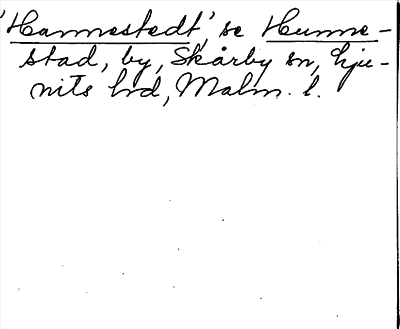 'Hannestedt', se Hunne-
stad, by, Skårby sn, Lju-
nits hd, Malm. l.